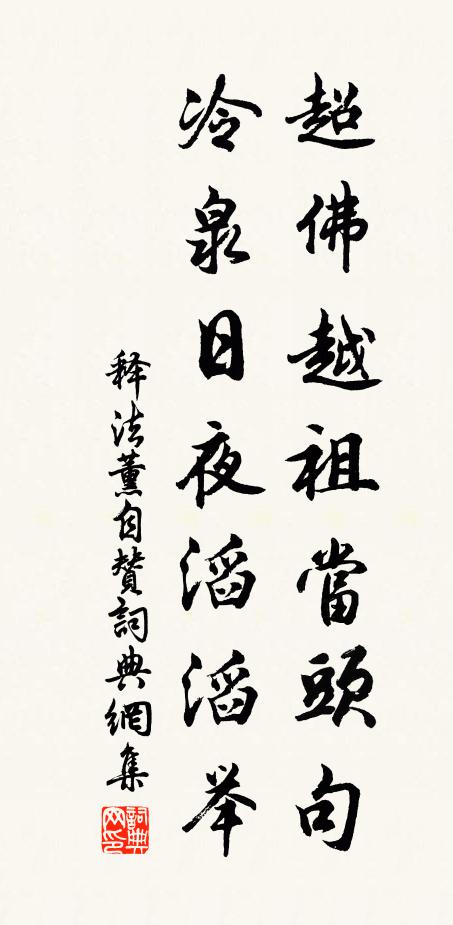 超佛越祖當頭句
冷泉日夜滔滔举
释法薰自赞詞典網集
詞典網印